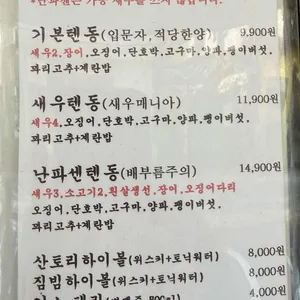 기본텐동(입문자,적당한양) 9,900원
새우2,장어,오징어,단호박,고구마,양파,팽이버섯,
꽈리고추+계란밥
새우텐동(새우매니아) 11,900원
새우4,오징어,단호박,고구마,양파,팽이버섯,
꽈리고추+계란밥
난파센텐동(배부름주의) 14,900원
새우3,소고기2,흰살생선,장어,오징어다리
오징어,단호박,고구마,양파,팽이버섯,
꽈리고추+계란밥
산토리하이볼(위스키+토닉워터) 8,000원
짐빔하이볼(위스키+토닉워터) 8,000원
4,000원